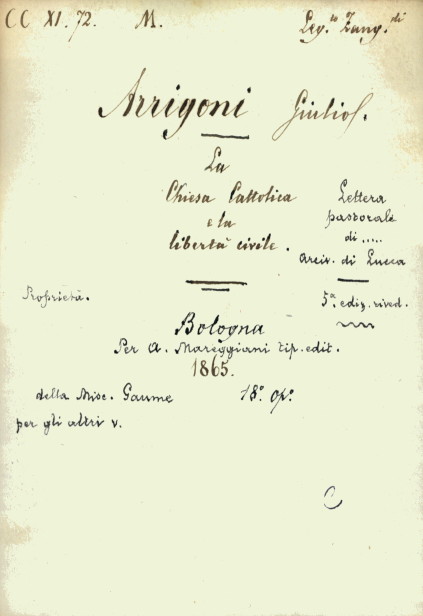 CC XI. 72. M. Leg.to Zang.di
Arrigoni Giulio.
La
Chiesa Cattolica
e la
libertà civile.
Lettera
pastorale
di .....
Arciv. di Lucca
Proprietà.
5a ediz. rived.
Bologna
Per A. Mareggiani tip. edit.
1865.
della Misc. Gaume 18o. opo.
per gli altri v.
C